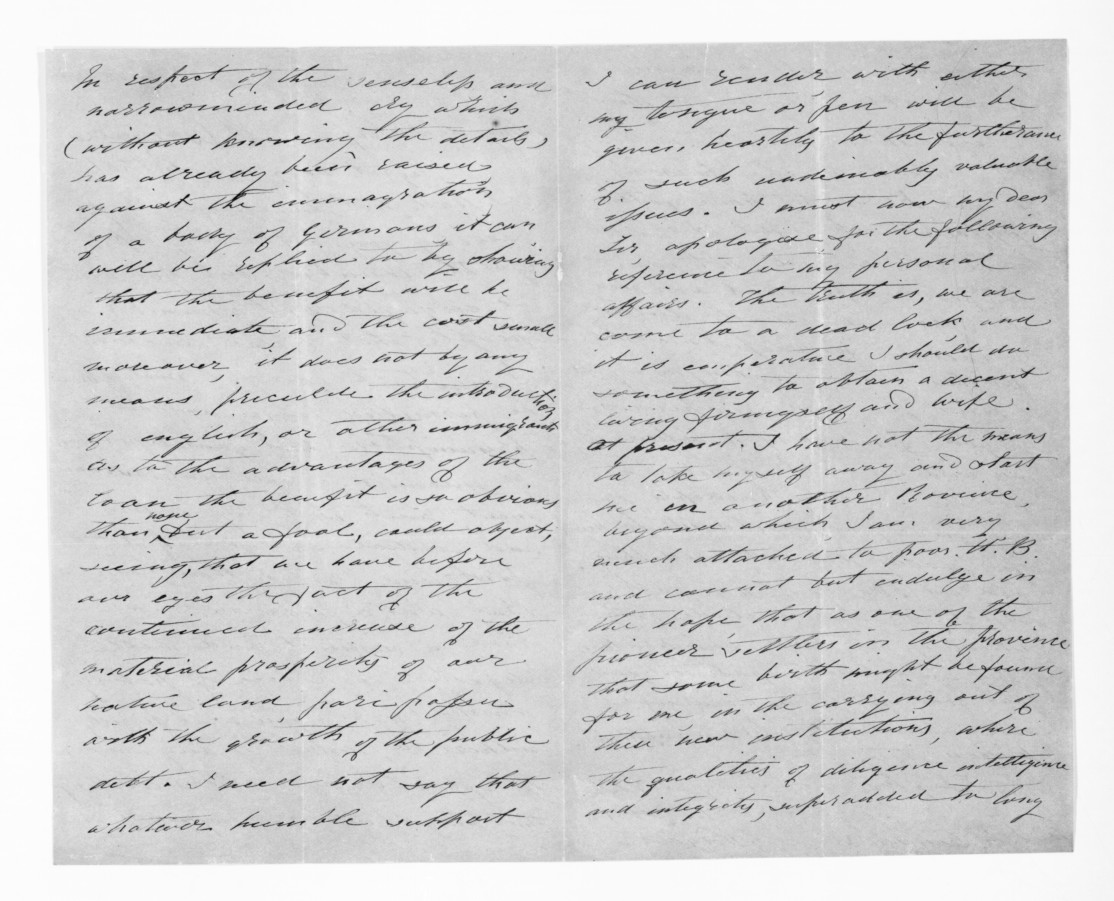 In respect of the senseless and
narrowminded cry which
(without knowing the details)
has already been raised
against the immagration
of a body of Germans it can
well be replied to by showing
that the benefit will be
immediate and the cost small
moreover, it does not by any
means, preculde the introduction
of english, or other immigrants
as to the advantages of the
loan the benefit is so obvious
than none but a fool, could object,
seeing, that we have before
our eyes the fact of the
continued increase of the
material prosperity of our
native land, pari passu
with the growth of the public
debt. I need not say that
whatever humble support
I can render with either
my tongue or pen will be
given heartily to the furtherance
of such undeniably valuable
issues. I must now my dear
Sir apologise for the following
reference to my personal
affairs. The truth is, we are
come to a dead lock and
it is imperative I should do
something to obtain a decent
living for myself and wife.
At present I have not the means
to take myself away and start
me in another Province,
beyond which I am very
much attached to poor H. B.
and cannot but indulge in
the hope, that as one of the
pioneer settlers in the province
that some birth might be found
for me, in the carrying out of
these new institutions, where
the qualities of diligence intelligence
and integrity, superadded to long